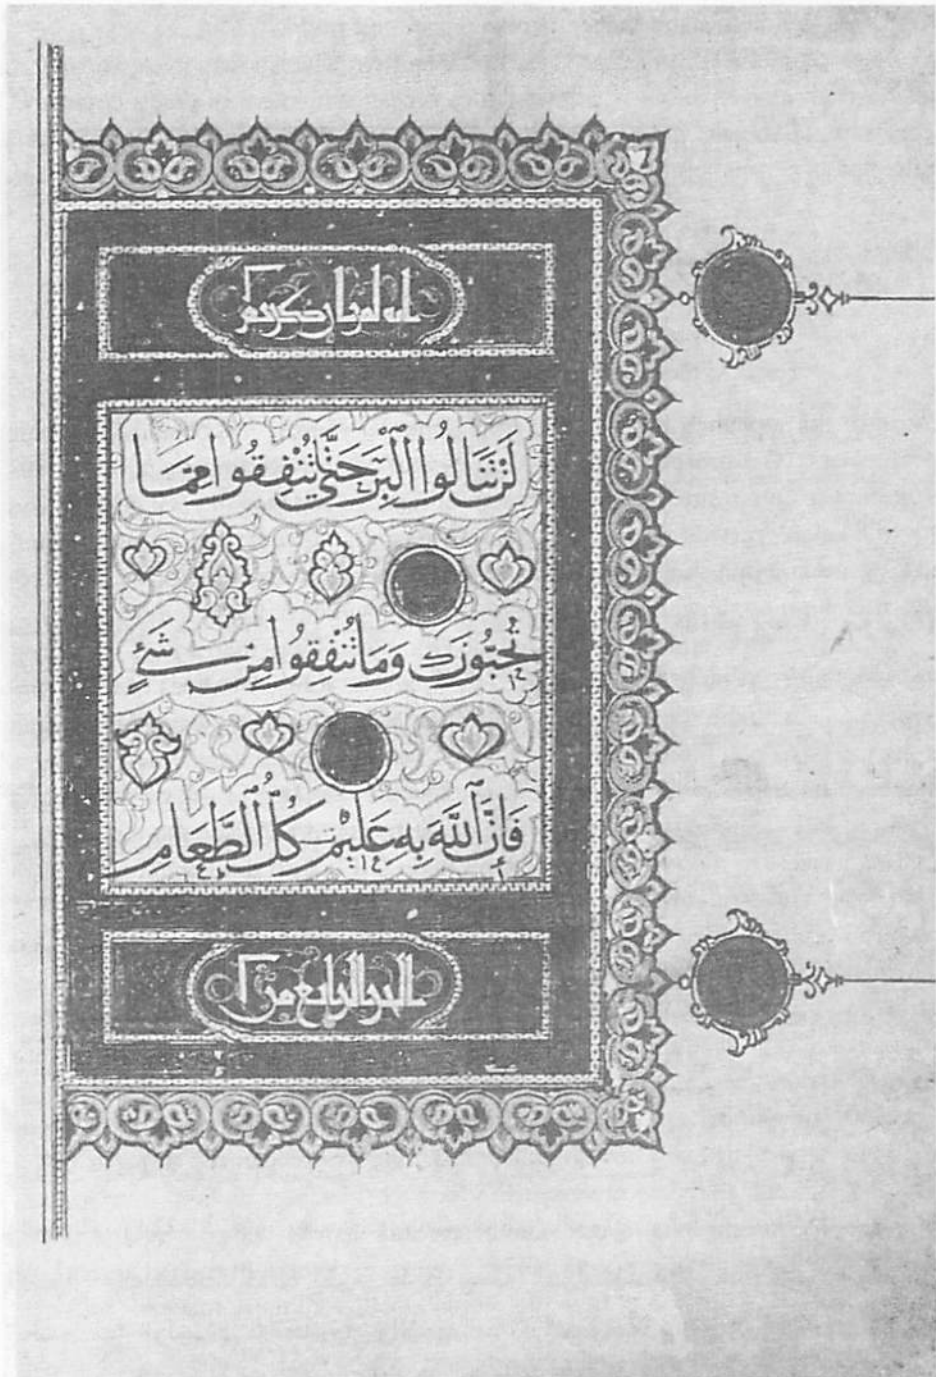 انه لقران كريم
لَنْ تَنَالُوا الْبِرَّ حَتَّىٰ تُنْفِقُوا مِمَّا
تُحِبُّونَ وَمَا تُنْفِقُوا مِنْ شَىْءٍ
فَاِنَّ اللّٰهَ بِهِ عَلِيْمٌ كُلُّ الطَّعَامِ
الجزو الرابع من